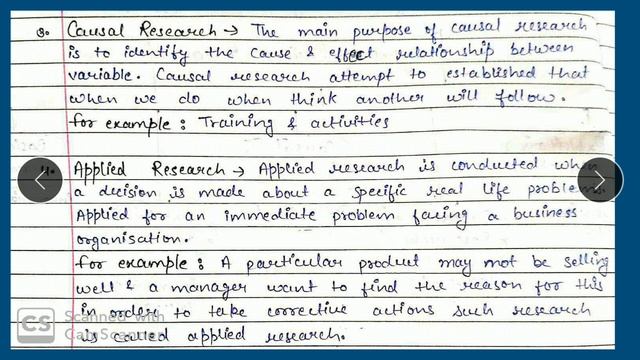 3. Causal Research → The main purpose of causal research
is to identify the cause & effect relationship between
variable. Causal research attempt to established that
when we do when think another will follow.
for example : Training & activities
4. Applied Research → Applied research is conducted when
a decision is made about a specific real life problem.
Applied for an immediate problem facing a business
organisation.
for example : A particular product may not be selling
well & a manager want to find the reason for this
in order to take corrective actions such research
is called applied research.
CS Scanned with
CamScanner